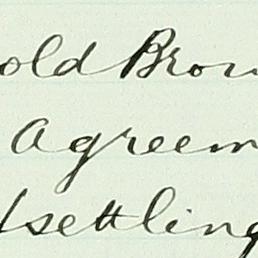 old Brow
Agreem
settling